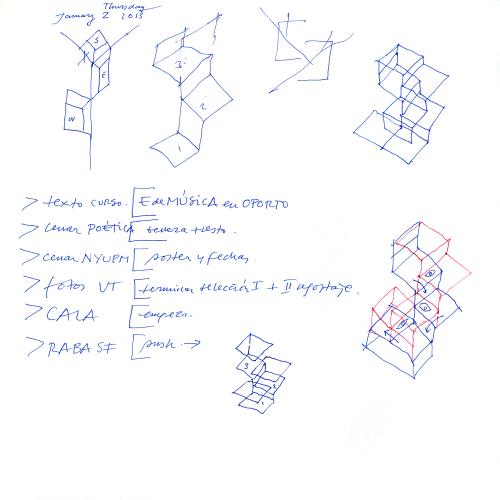 Thursday
January 2 2013
S
E
W
3
2
1
> texto curso. [E de MÚSICA en OPORTO
> cerrar POÉTICA [
> cerrar NYUPM [poster y fechas.
> fotos VT [terminar selección I + II reportaje.
> CALA [empezar.
> RABASF [push. →
3
2
1